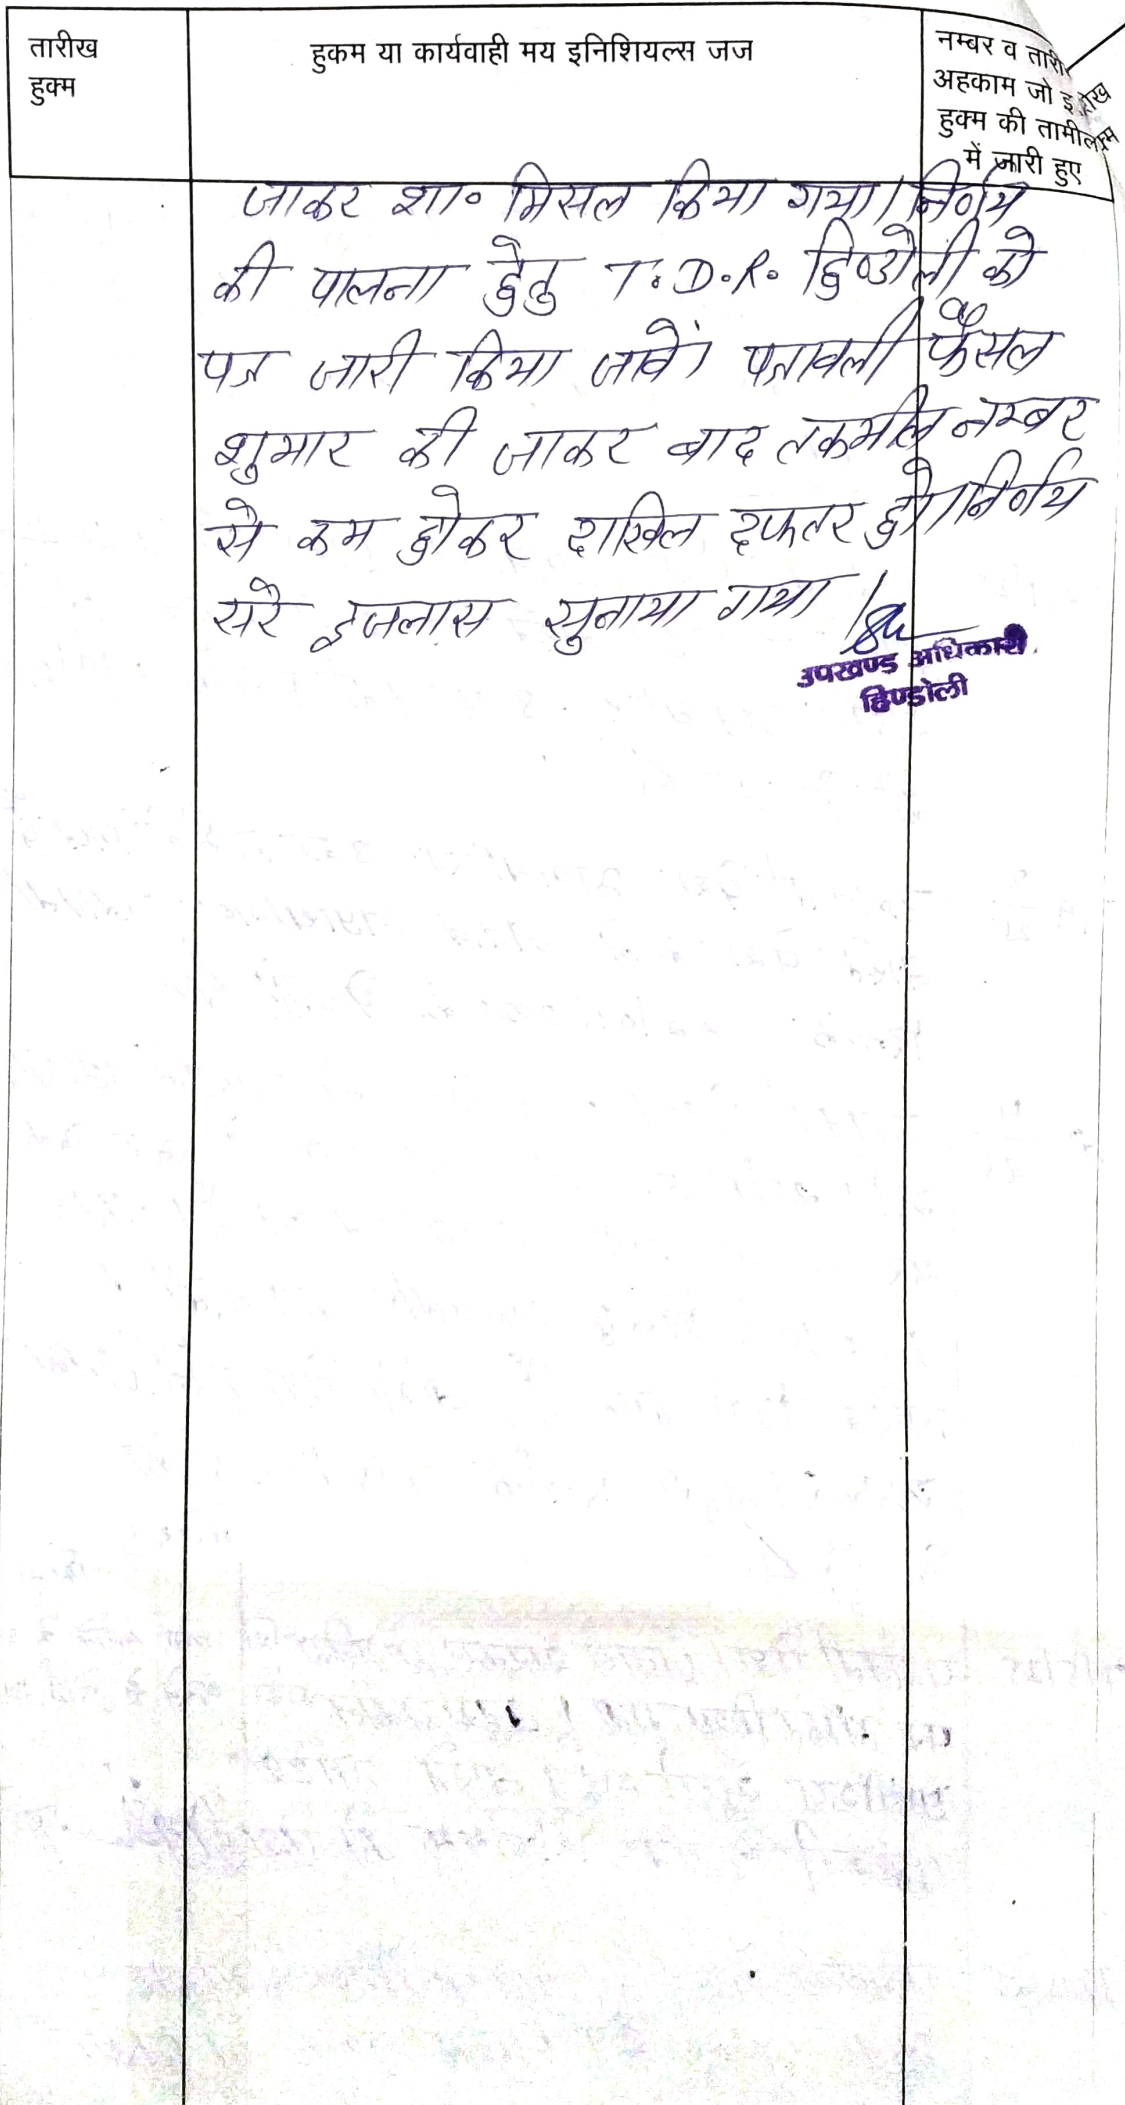 तारीख
हुक्म
हुकम या कार्यवाही मय इनिशियल्स जज
नम्बर व तारीख
अहकाम जो इस
हुक्म की तामील
में जारी हुए
जाकर शा० मिसल किया गया। निर्णय
की पालना हेतु T.D.R. हिण्डोली को
पत्र जारी किया जावें। पत्रावली फैसल
शुमार की जाकर बाद तकमील नम्बर
से कम होकर दाखिल दफतर हो। निर्णय
सरे इजलास सुनाया गया।
उपखण्ड अधिकारी
हिण्डोली